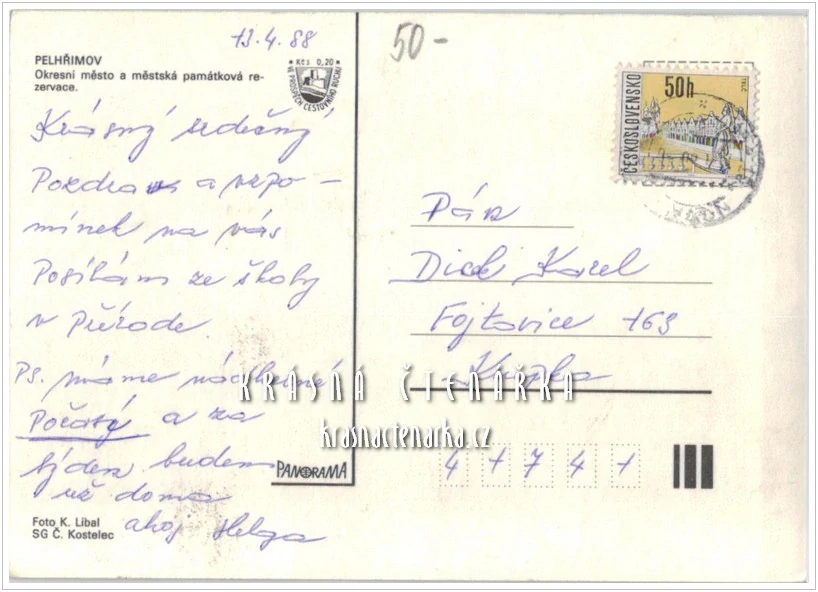 13.4.88
50-
PELHŘIMOV
Okresní město a městská památková re-
zervace.
Kčs 0,20
VE PROSPĚCH CESTOVNÍHO RUCHU
ČESKOSLOVENSKO
50h
TELČ
Krásný srdečný
Pozdrav a vzpo-
mínek na vás
Posílám ze školy
v Přírodě.
PS. máme nádherné
Počasý a za
týden budem
už doma
ahoj Helga
Pár
Karel
Fojtovice 163
Krupka
4 1 7 4 1
KRÁSNÁ ČTENÁŘKA
krasnactenarka.cz
PANORAMA
Foto K. Libal
SG Č. Kostelec